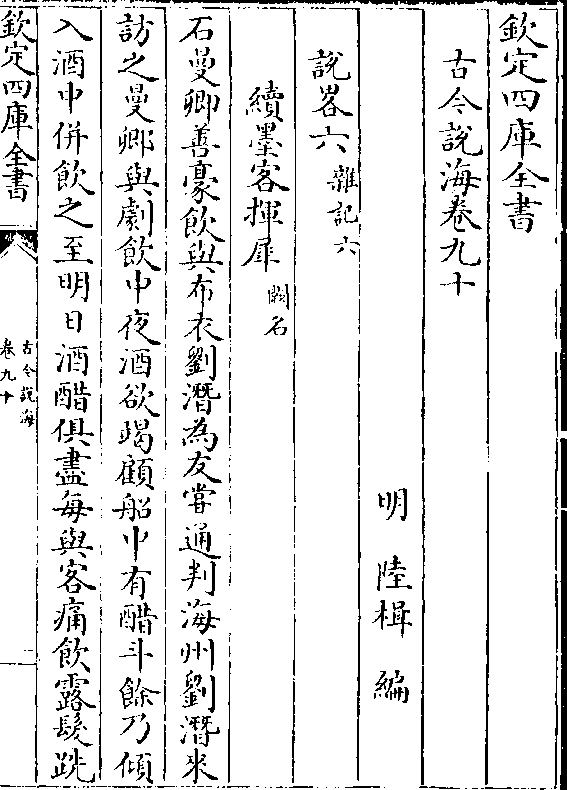 欽定四庫全書
古今說海卷九十
明 陸楫 編
說畧六 雜記六
續墨客揮犀 闕名
石曼卿善豪飲與布衣劉潛為友嘗通判海州劉潛來
訪之曼卿與劇飲中夜酒欲竭顧船中有醋斗餘乃傾
入酒中併飲之至明日酒醋俱盡每與客痛飲露髮跣
欽定四庫全書
古今說海
卷九十
一